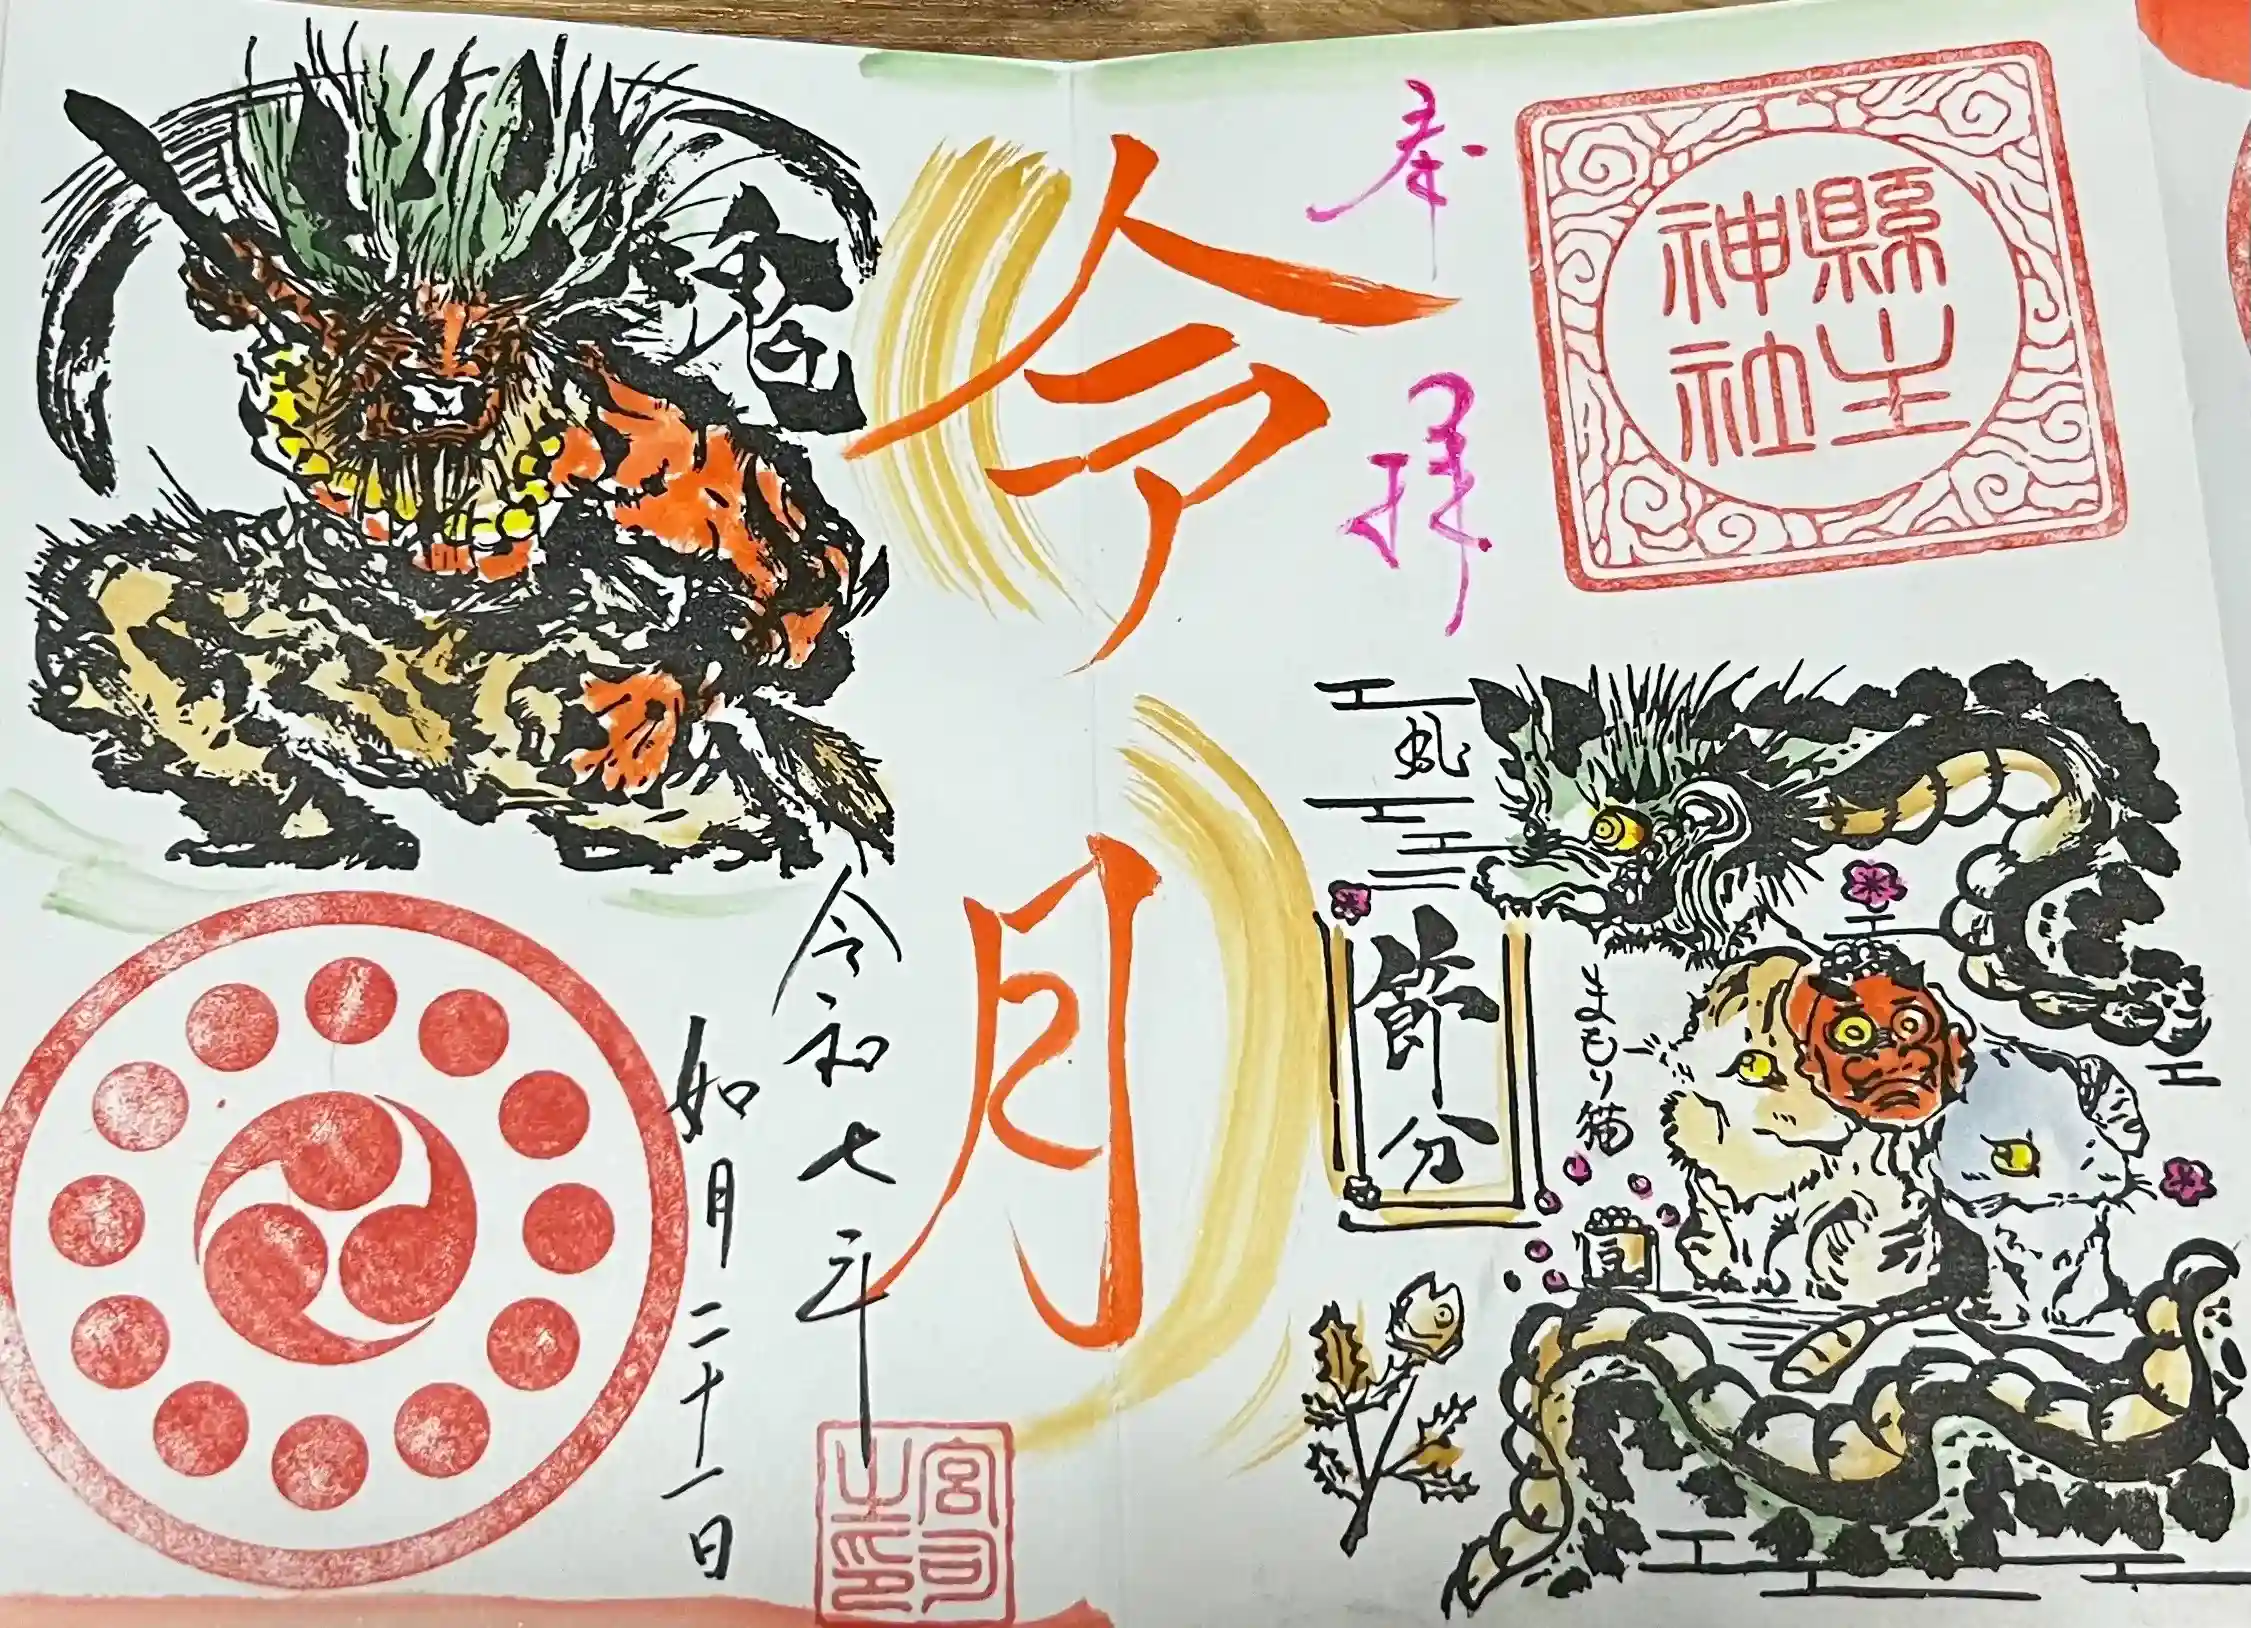 縣主
神社
奉拝
虬
節分
まもり猫
豆
令月
鬼
令和七年
如月二十一日
宮司
之印